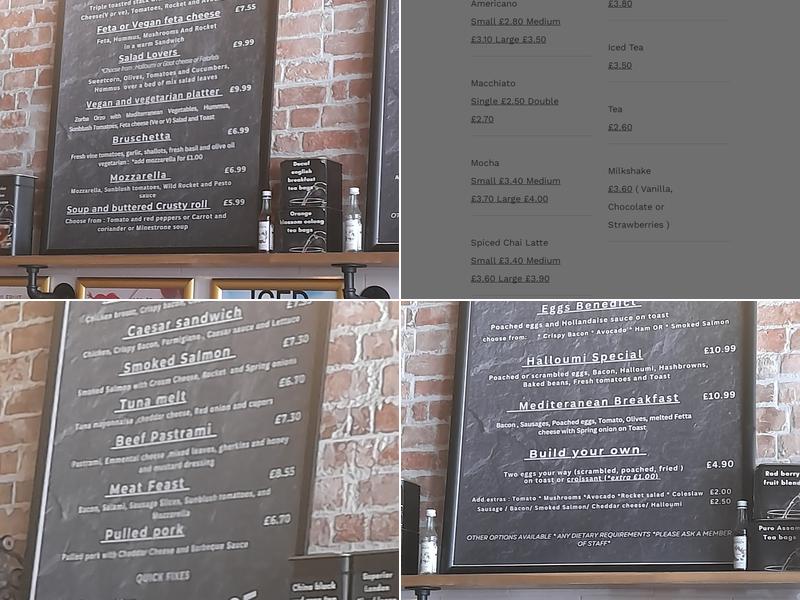 Triple toasted stack
Cheese(V or ve), Tomatoes, Rocket and
£7.55
Feta or Vegan feta cheese
Feta, Hummus, Mushrooms And Rocket
in a warm Sandwich
£9.99
Salad Lovers
*Choose from : Halloumi or Goat cheese of Falafels
Sweetcorn, Olives, Tomatoes and Cucumbers,
Hummus over a bed of mix salad leaves
Vegan and vegetarian platter £9.99
Zorba Orzo with Mediterranean Vegetables, Hummus,
Sunblush Tomatoes, Feta cheese(Ve or V) Salad and Toast
£6.99
Bruschetta
Fresh vine tomatoes, garlic, shallots, fresh basil and olive oil
vegetarian : *add mozzarella for £1.00
Mozzarella £6.99
Mozzarella, Sunblush tomatoes, Wild Rocket and Pesto
sauce
Soup and buttered Crusty roll £5.99
Choose from : Tomato and red peppers or Carrot and
coriander or Minestrone soup
Decaf
english
breakfast
tea bags
Orange
blossom oolong
tea bags
ICED
Americano
Small £2.80 Medium
£3.10 Large £3.50
Macchiato
Single £2.50 Double
£2.70
Mocha
Small £3.40 Medium
£3.70 Large £4.00
Spiced Chai Latte
Small £3.40 Medium
£3.60 Large £3.90
£3.80
Iced Tea
£3.50
Tea
£2.60
Milkshake
£3.60 ( Vanilla,
Chocolate or
Strawberries )
Chicken breast, Crispy bacon,
Caesar sandwich
Chicken, Crispy Bacon, Parmigiano, Caesar sauce and Lettuce
£7.30
Smoked Salmon
Smoked Salmon with Cream Cheese, Rocket and Spring onions
£6.70
Tuna melt
Tuna mayonnaise ,cheddar cheese, Red onion and capers
£7.30
Beef Pastrami
Pastrami, Emmental cheese ,mixed leaves, gherkins and honey
and mustard dressing
£8.55
Meat Feast
Bacon, Salami, Sausage Slices, Sunblush tomatoes, and
Mozzarella
£6.70
Pulled pork
Pulled pork with Cheddar Cheese and Barbeque Sauce
QUICK FIXES
China black
Superior
London
Eggs Benedict
Poached eggs and Hollandaise sauce on toast
choose from: * Crispy Bacon * Avocado * Ham OR * Smoked Salmon
Halloumi Special £10.99
Poached or scrambled eggs, Bacon, Halloumi, Hashbrowns,
Baked beans, Fresh tomatoes and Toast
Mediteranean Breakfast £10.99
Bacon , Sausages, Poached eggs, Tomato, Olives, melted Fetta
cheese with Spring onion on Toast
Build your own
Two eggs your way (scrambled, poached, fried ) £4.90
on toast or croissant (*extra £1.00)
Add extras : Tomato * Mushrooms *Avocado *Rocket salad * Coleslaw £2.00
Sausage / Bacon/ Smoked Salmon/ Cheddar cheese/ Halloumi £2.50
OTHER OPTIONS AVAILABLE * ANY DIETARY REQUIREMENTS *PLEASE ASK A MEMBER
OF STAFF*
Red berry
fruit blend
Pure Assam
Tea bags